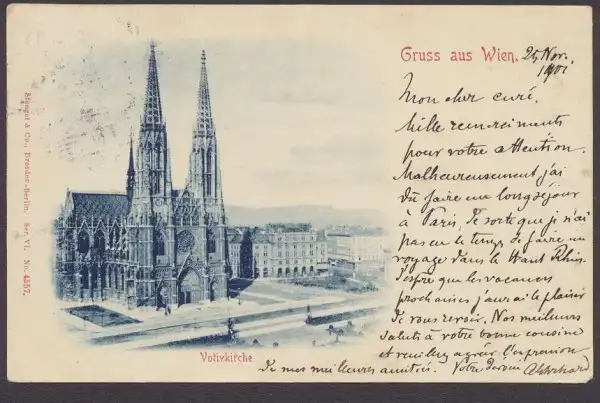 Gruss aus Wien. 25 Nov.
1901
Mon cher curé.
Mille remerciments
pour votre attention.
Malheureusement j'ai
dû faire un long séjour
à Paris, de sorte que je n'ai
pas eu le temps de faire un
voyage dans le Haut Rhin.
J'espre que les vacances
prochaines j'aurai le plaisir
de vous revoir. Nos meilleurs
saluts à votre bonne cousine
et veuillez agréer l'expression
de mes meilleures amitiés. Votre
Votivkirche
Stengel & Co., Dresden-Berlin. Ser. VI. No. 4557.